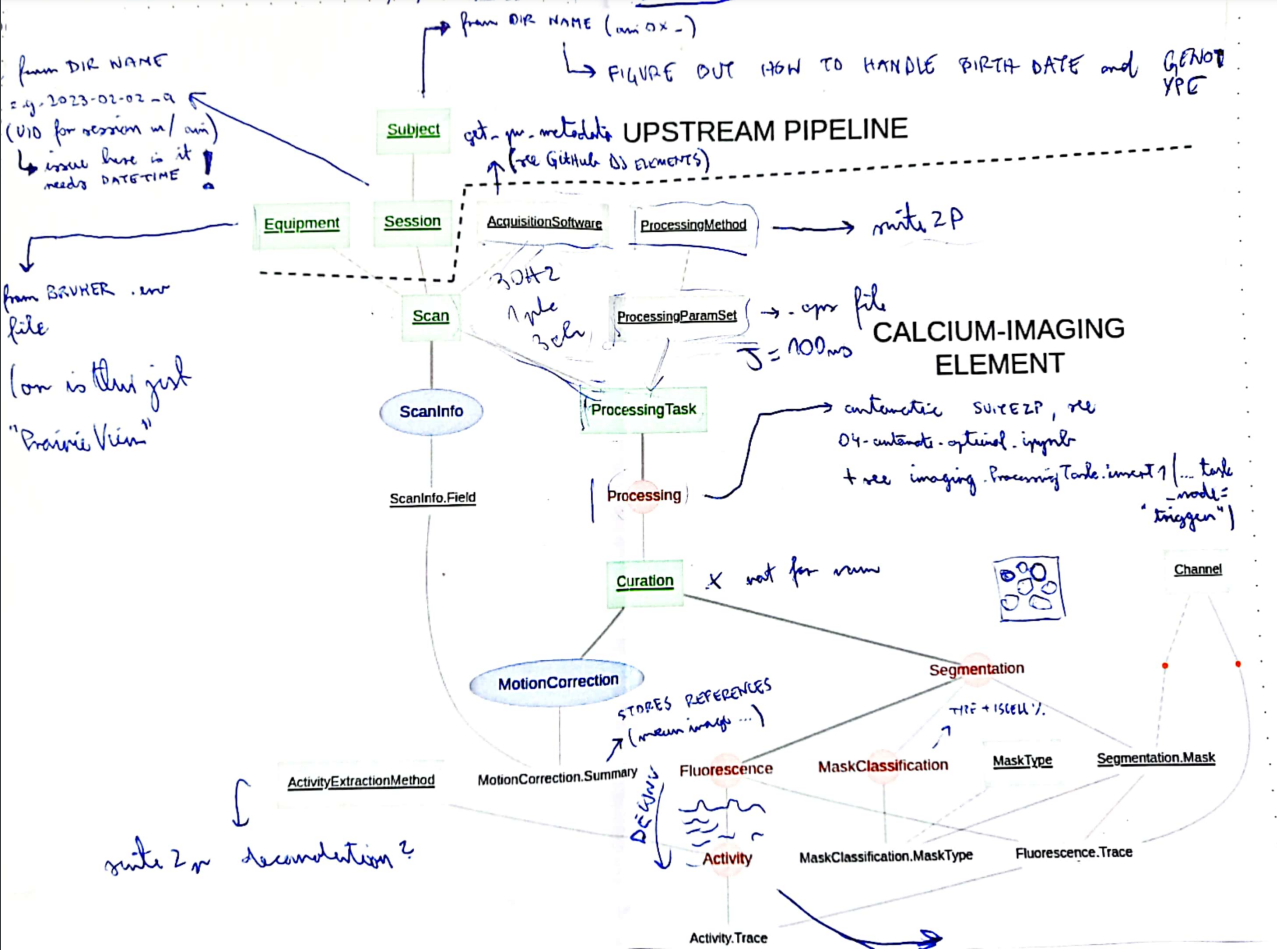 from DIR NAME (
FIGURE OUT HOW TO HANDLE BIRTH DATE and GENOT
YPE
from DIR NAME
e.g. 2023-02-02_a
(UID for session w/
issue here is it
needs DATETIME !
Subject
UPSTREAM PIPELINE
(see GitHub DJ ELEMENTS)
Equipment
Session
AcquisitionSoftware
ProcessingMethod
suite2P
from BRUKER .env
file
(or is this just
"Prairie View"
30Hz
Scan
ProcessingParamSet
file
CALCIUM-IMAGING
ELEMENT
ScanInfo
ProcessingTask
automatic SUITE2P, see
04-automate-optional.ipynb
+ see imaging.ProcessingTask.insert1(... task
_mode=
"trigger")
ScanInfo.Field
Processing
Curation
x not for
Channel
MotionCorrection
Segmentation
STORES REFERENCES
(mean image ...)
ActivityExtractionMethod
MotionCorrection.Summary
Fluorescence
MaskClassification
MaskType
Segmentation.Mask
suite2p deconvolution?
Activity
MaskClassification.MaskType
Fluorescence.Trace
Activity.Trace